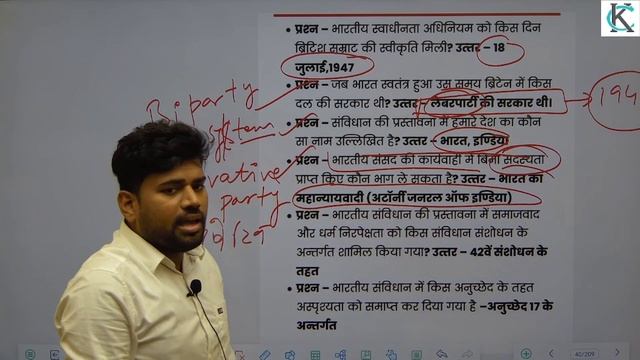 • प्रश्न – भारतीय स्वाधीनता अधिनियम को किस दिन
ब्रिटिश सम्राट की स्वीकृति मिली? उत्तर – 18
जुलाई,1947
• प्रश्न – जब भारत स्वतंत्र हुआ उस समय ब्रिटेन में किस
दल की सरकार थी? उत्तर – लेबरपार्टी की सरकार थी।
• प्रश्न – संविधान की प्रस्तावना में हमारे देश का कौन
सा नाम उल्लिखित है? उत्तर – भारत, इण्डिया
• प्रश्न – भारतीय संसद की कार्यवाही में बिना सदस्यता
प्राप्त किए कौन भाग ले सकता है? उत्तर – भारत का
महान्यायवादी (अटॉर्नी जनरल ऑफ इण्डिया)
• प्रश्न – भारतीय संविधान की प्रस्तावना में समाजवाद
और धर्म निरपेक्षता को किस संविधान संशोधन के
अन्तर्गत शामिल किया गया? उत्तर – 42वें संशोधन के
तहत
• प्रश्न – भारतीय संविधान में किस अनुच्छेद के तहत
अस्पृश्यता को समाप्त कर दिया गया है –अनुच्छेद 17 के
अन्तर्गत
Biparty
system
vative
party
194
KC
40/209